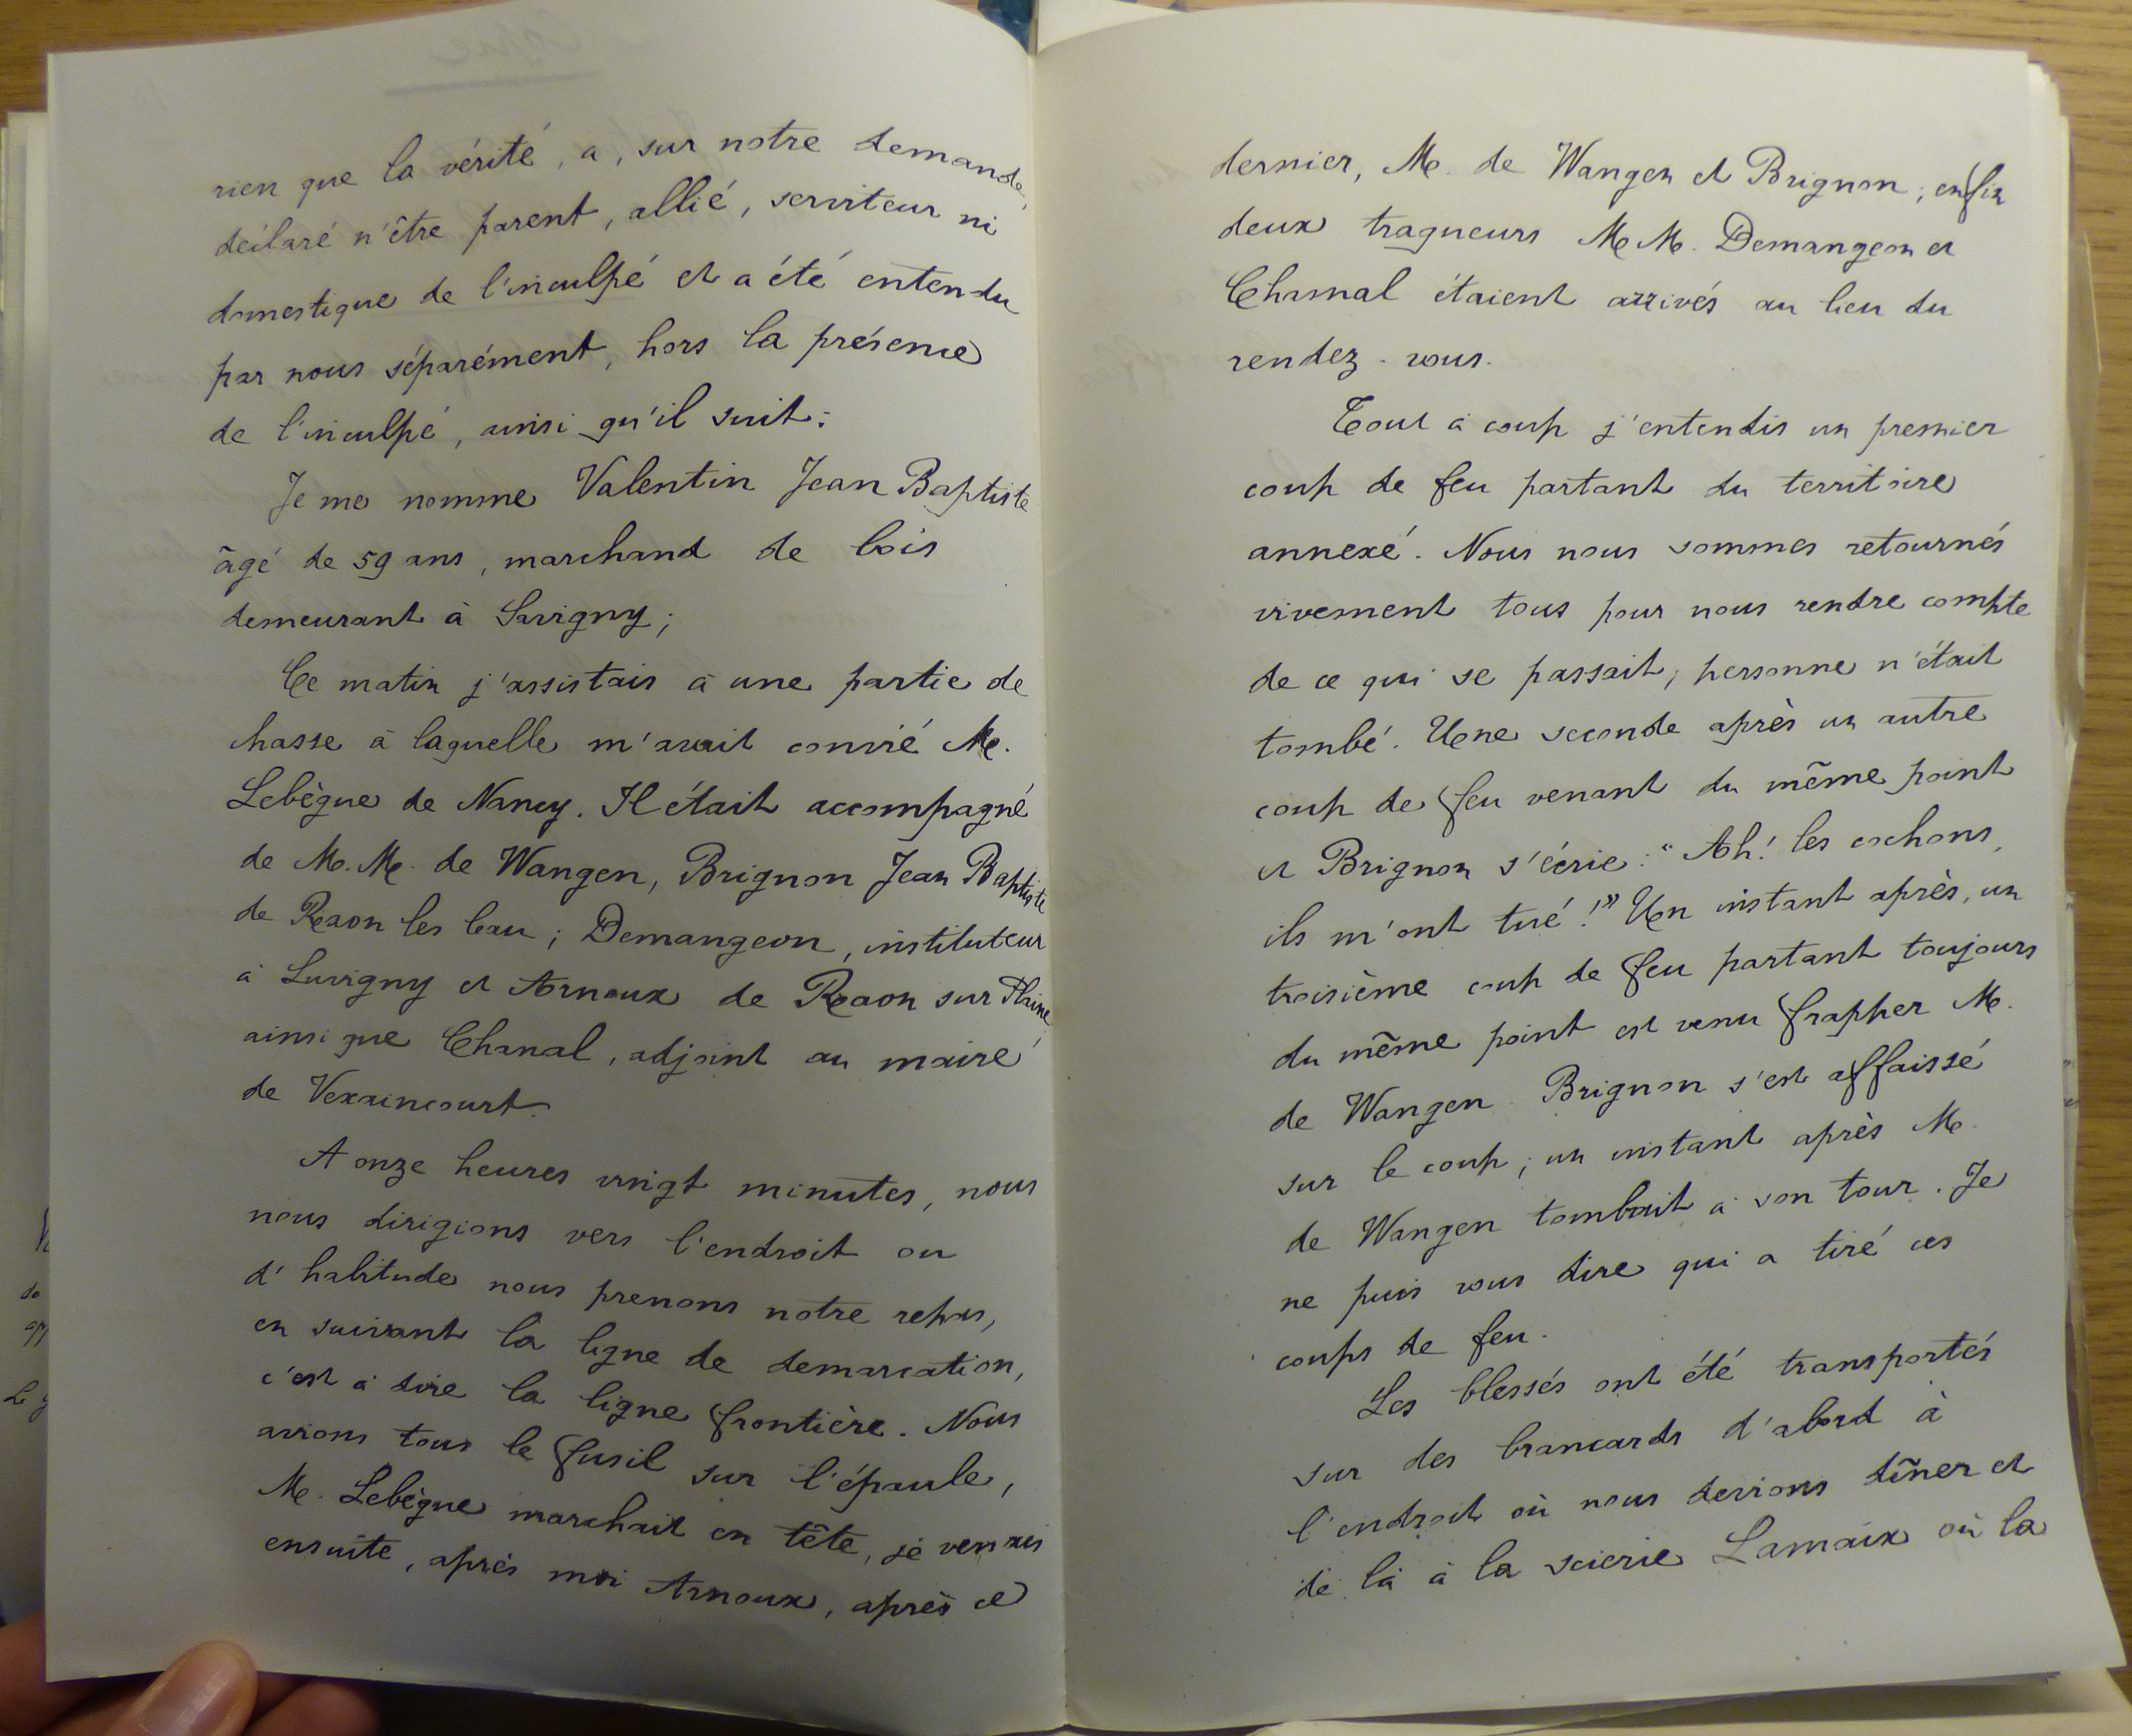 rien que la vérité, a, sur notre demande,
déclaré n'être parent, allié, serviteur ni
domestique de l'inculpé et a été entendu
par nous séparément, hors la présence
de l'inculpé, ainsi qu'il suit:
Je me nomme Valentin Jean Baptiste
âgé de 59 ans, marchand de bois
demeurant à Savigny;
Ce matin j'assistais à une partie de
chasse à laquelle m'avait convié M.
Lebègue de Nancy. Il était accompagné
de M.M. de Wangen, Brignon Jean Baptiste
de Raon les leau; Demangeon, instituteur
à Luvigny et Arnoux de Raon sur Plaine,
ainsi que Chanal, adjoint au maire
de Vexaincourt.
A onze heures vingt minutes, nous
nous dirigions vers l'endroit ou
d'habitude nous prenons notre repas,
en suivant la ligne de demarcation,
c'est à dire la ligne frontière. Nous
avions tous le fusil sur l'épaule,
M. Lebègue marchait en tête, je venais
ensuite, après moi Arnoux, après ce
dernier, M. de Wangen et Brignon; enfin
deux traqueurs M.M. Demangeon et
Chanal étaient arrivés au lieu du
rendez-vous.
Tout à coup j'entendis un premier
coup de feu partant du territoire
annexé. Nous nous sommes retournés
vivement tous pour nous rendre compte
de ce qui se passait; personne n'était
tombé. Une seconde après un autre
coup de feu venant du même point
et Brignon s'écrie: "Ah! les cochons,
ils m'ont tué!" Un instant après, un
troisième coup de feu partant toujours
du même point est venu frapper M.
de Wangen. Brignon s'est affaissé
sur le coup; un instant après M.
de Wangen tombait à son tour. Je
ne puis vous dire qui a tiré ces
coups de feu.
Les blessés ont été transportés
sur des brancards d'abord à
l'endroit où nous devions dîner et
de là à la scierie Lamaix où la